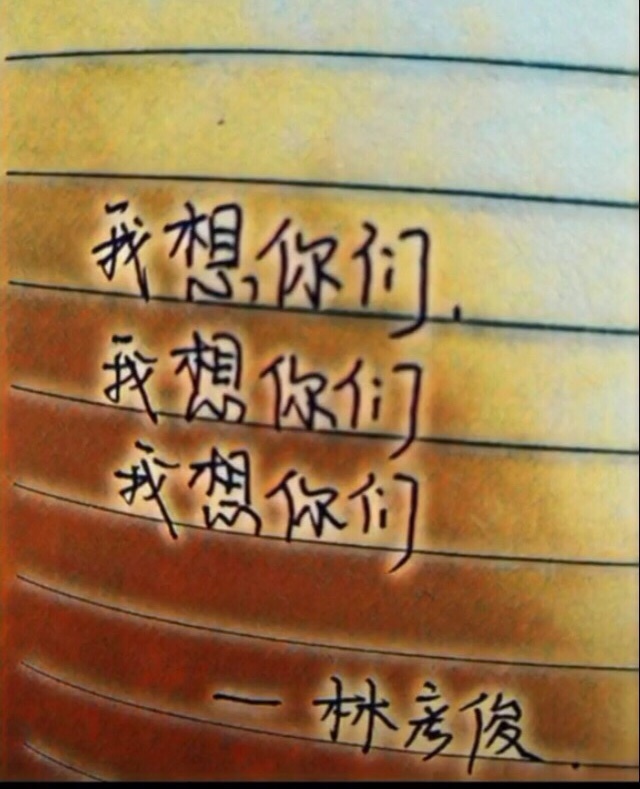 我想你们.
我想你们
我想你们
—林彦俊.